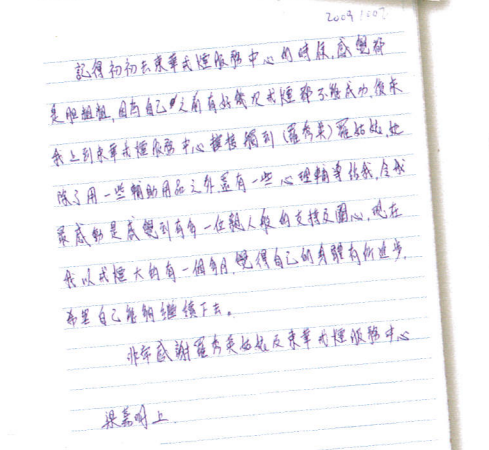 2009
記得初初去東華戒煙服務中心的時侯，感覺都
是胆粗粗，因為自己之前有好幾次戒煙都不能成功，後來
我上到東華戒煙服務中心 到（羅秀英）羅姑娘，她
除了用一些輔助用品之外還有一些心理輔導給我，令我
最感動是感覺到有多一位親人般的支持及關心，現在
我以戒煙大約有一個多月，覺得自己的身體有所進步，
希望自己能夠繼續下去。
非常感謝羅秀英姑娘及東華戒煙服務中心
梁嘉明上